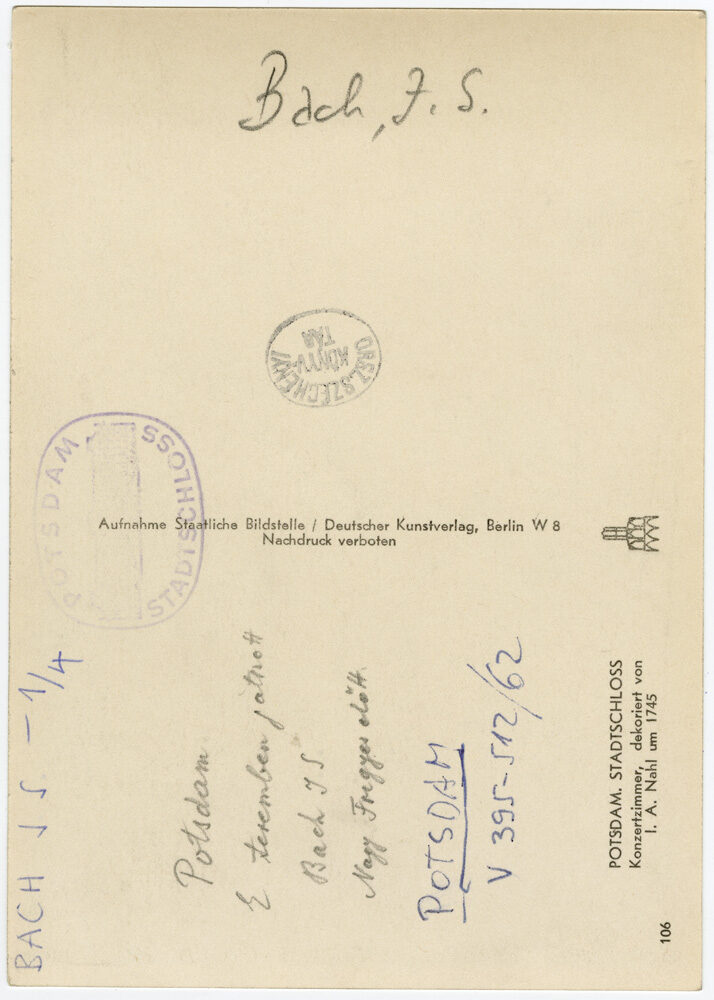 Bach, J. S.
ORSZ. SZÉCHÉNYI
KÖNYV-
TÁR
POTSDAM
STADTSCHLOSS
Aufnahme Staatliche Bildstelle / Deutscher Kunstverlag, Berlin W 8
Nachdruck verboten
BACH J S. – 1/4
Potsdam
E teremben játszott
Bach J S
Nagy Frigyes előtt.
POTSDAM
V 395-512/62
POTSDAM. STADTSCHLOSS
Konzertzimmer, dekoriert von
I. A. Nahl um 1745
106